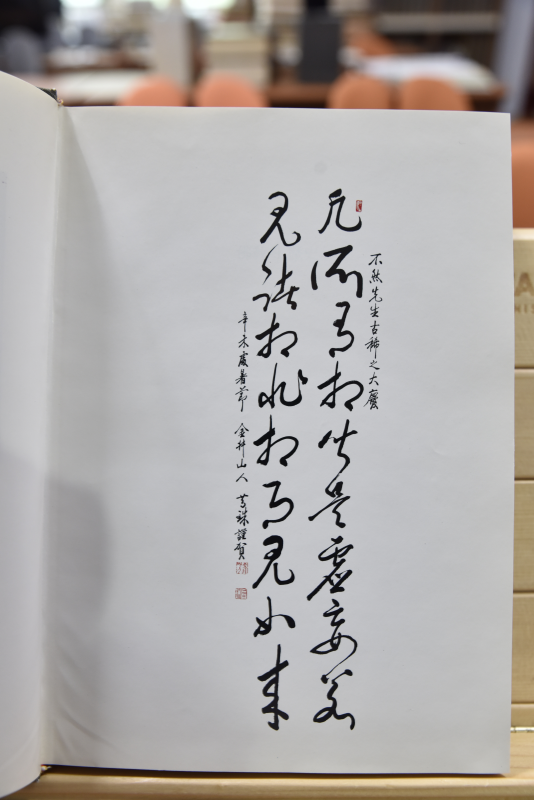 不然先生古稀之大慶
凡所有相皆是虛妄若
見諸相非相卽見如來
辛未處暑節 金井山人 珠謹賀